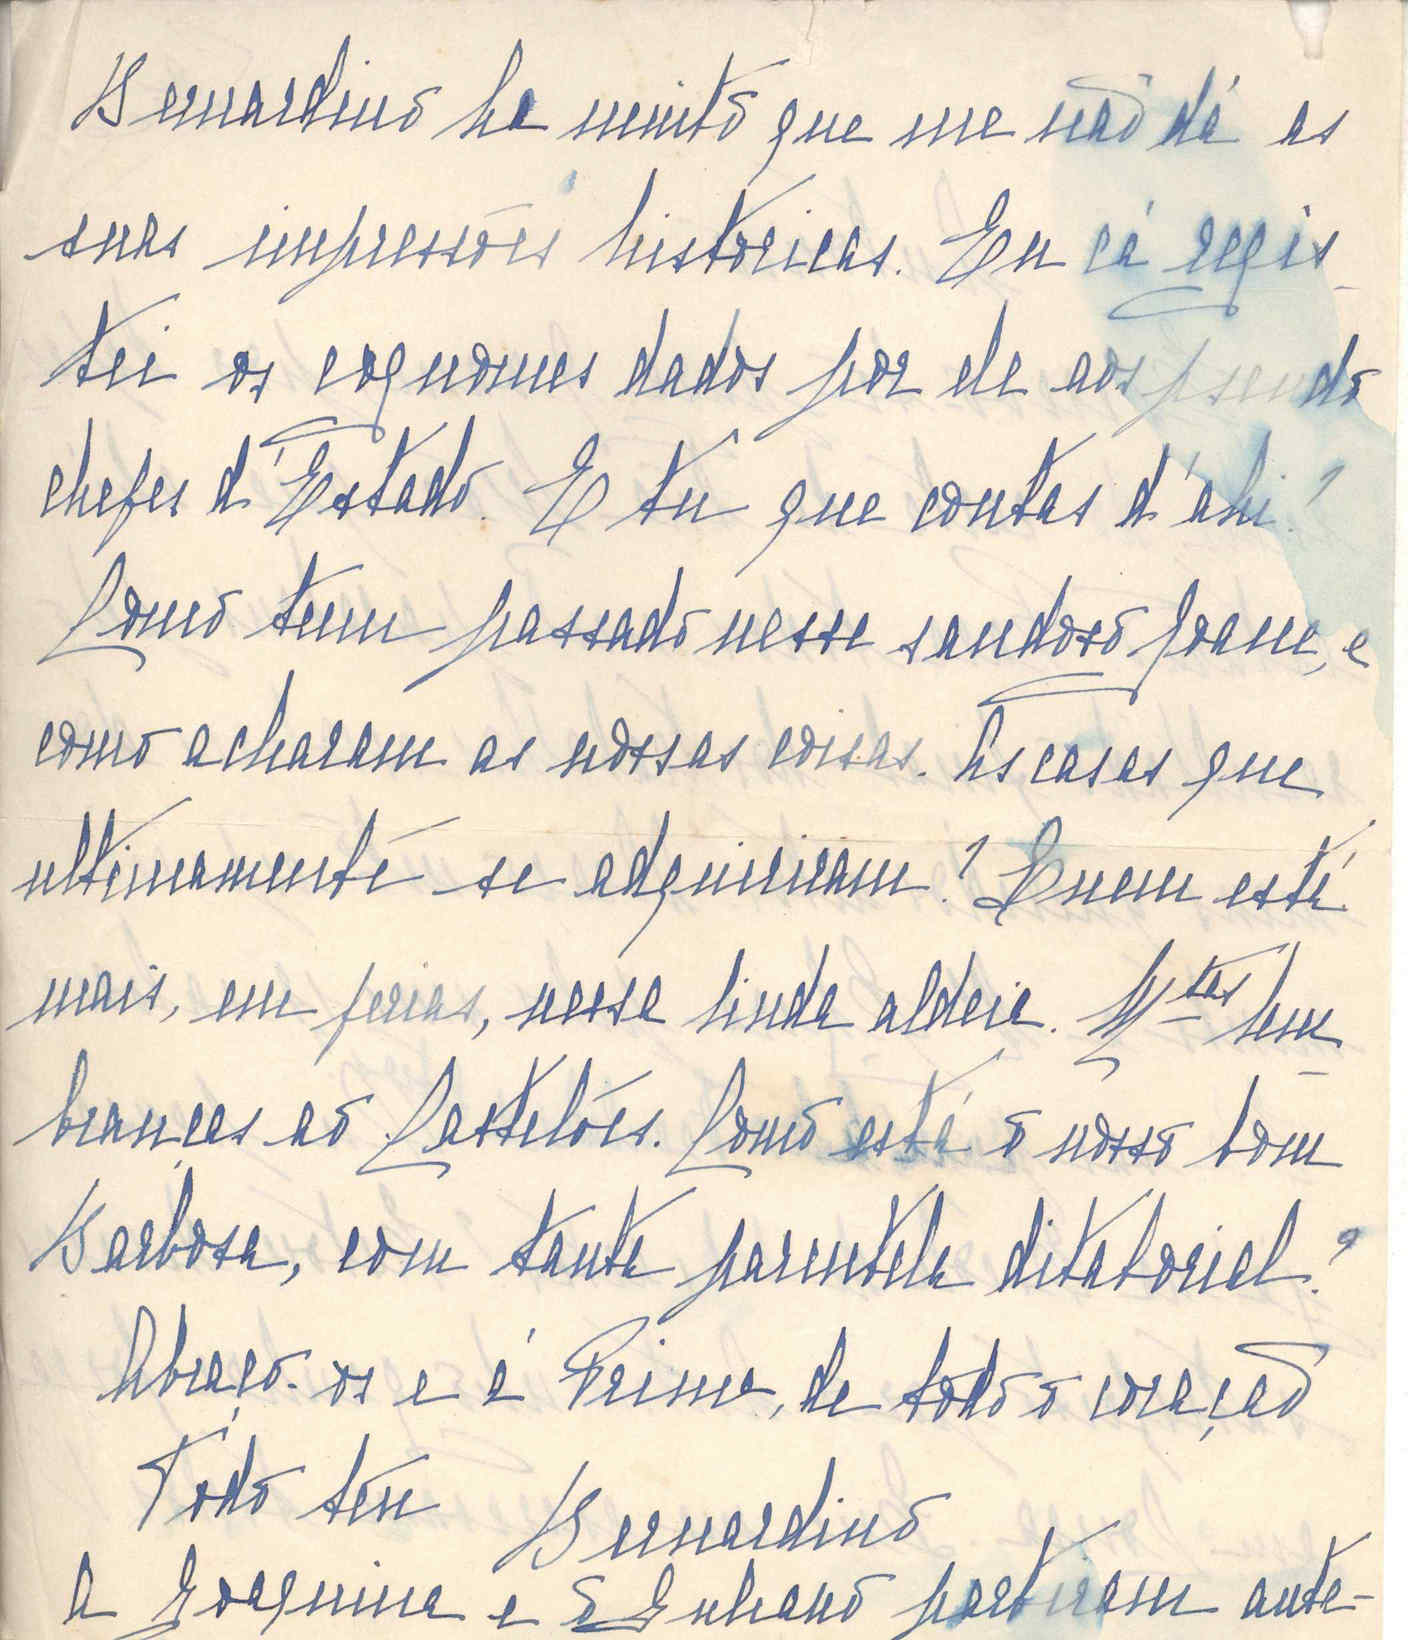 Bernardino ha muito que me não dá as
suas impressões historicas. Eu cá regis-
tei os cognomes dados por ele aos pseudo
chefes d'Estado. E tu que contas d'ahi?
Como teem passado nesse saudoso Joane, e
como acharam as nossas coisas. As casas que
ultimamente se adquiriram? Quem está
mais, em ferias, nessa linda aldeia. Mtas lem-
branças ao Castelões. Como está o nosso bom
Barbosa, com tanta parentela ditatorial?
Abraço-os e á Prima, de todo o coração
Todo teu Bernardino
A Joaquina e o Juliano partiram ante-